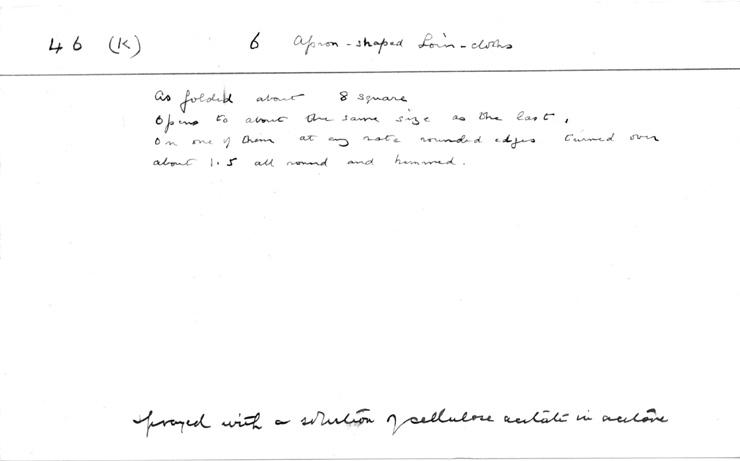 46 (K) 6 Apron-shaped Loin-cloths
As folded about 8 square
Opens to about the same size as the last,
On one of them at any rate rounded edges turned over
about 1.5 all round and hemmed.
Sprayed with a solution of cellulose acetate in acetone